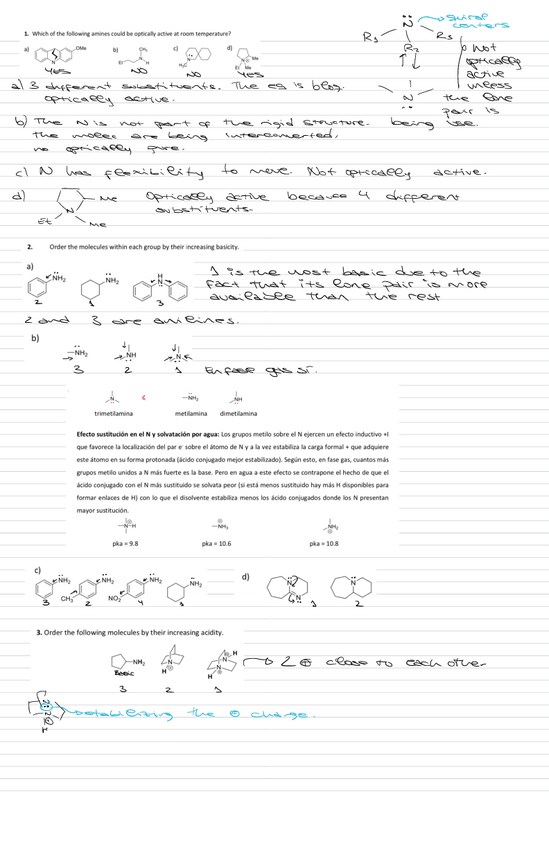 1. Which of the following amines could be optically active at room temperature?
a) OMe b) CH₃ Et N H c) H₃C N d) Me N Et Me
YES NO NO YES
N → chiral centers
R₁ R₂ R₃
not optically active unless the lone pair is being use.
a) 3 different substituents. The es is bloq.
optically active.
b) The N is not part of the rigid structure.
the molec are being interconverted,
no optically pure.
c) N has flexibility to move. Not optically active.
d) Me N Et Me Optically active because 4 different
substituents.
2. Order the molecules within each group by their increasing basicity.
a) NH₂ NH₂ H N
2 1 3
1 is the most basic due to the
fact that its lone pair is more
available than the rest
2 and 3 are anilines.
b)
NH₂ NH N
3 2 1 En fase gas si.
N < NH₂ NH
trimetilamina metilamina dimetilamina
Efecto sustitución en el N y solvatación por agua: Los grupos metilo sobre el N ejercen un efecto inductivo +I
que favorece la localización del par e⁻ sobre el átomo de N y a la vez estabiliza la carga formal + que adquiere
este átomo en su forma protonada (ácido conjugado mejor estabilizado). Según esto, en fase gas, cuantos más
grupos metilo unidos a N más fuerte es la base. Pero en agua a este efecto se contrapone el hecho de que el
ácido conjugado con el N más sustituido se solvata peor (si está menos sustituido hay más H disponibles para
formar enlaces de H) con lo que el disolvente estabiliza menos los ácidos conjugados donde los N presentan
mayor sustitución.
N-H NH₃ NH₂
pka = 9.8 pka = 10.6 pka = 10.8
c) d)
NH₂ CH₃ NH₂ NO₂ NH₂ NH₂ N N N
3 2 4 1 1 2
3. Order the following molecules by their increasing acidity.
NH₂ N H N H N H
Basic
3 2 1
→ 2 ⊕ close to each other
N N H estabilizing the ⊕ charge.